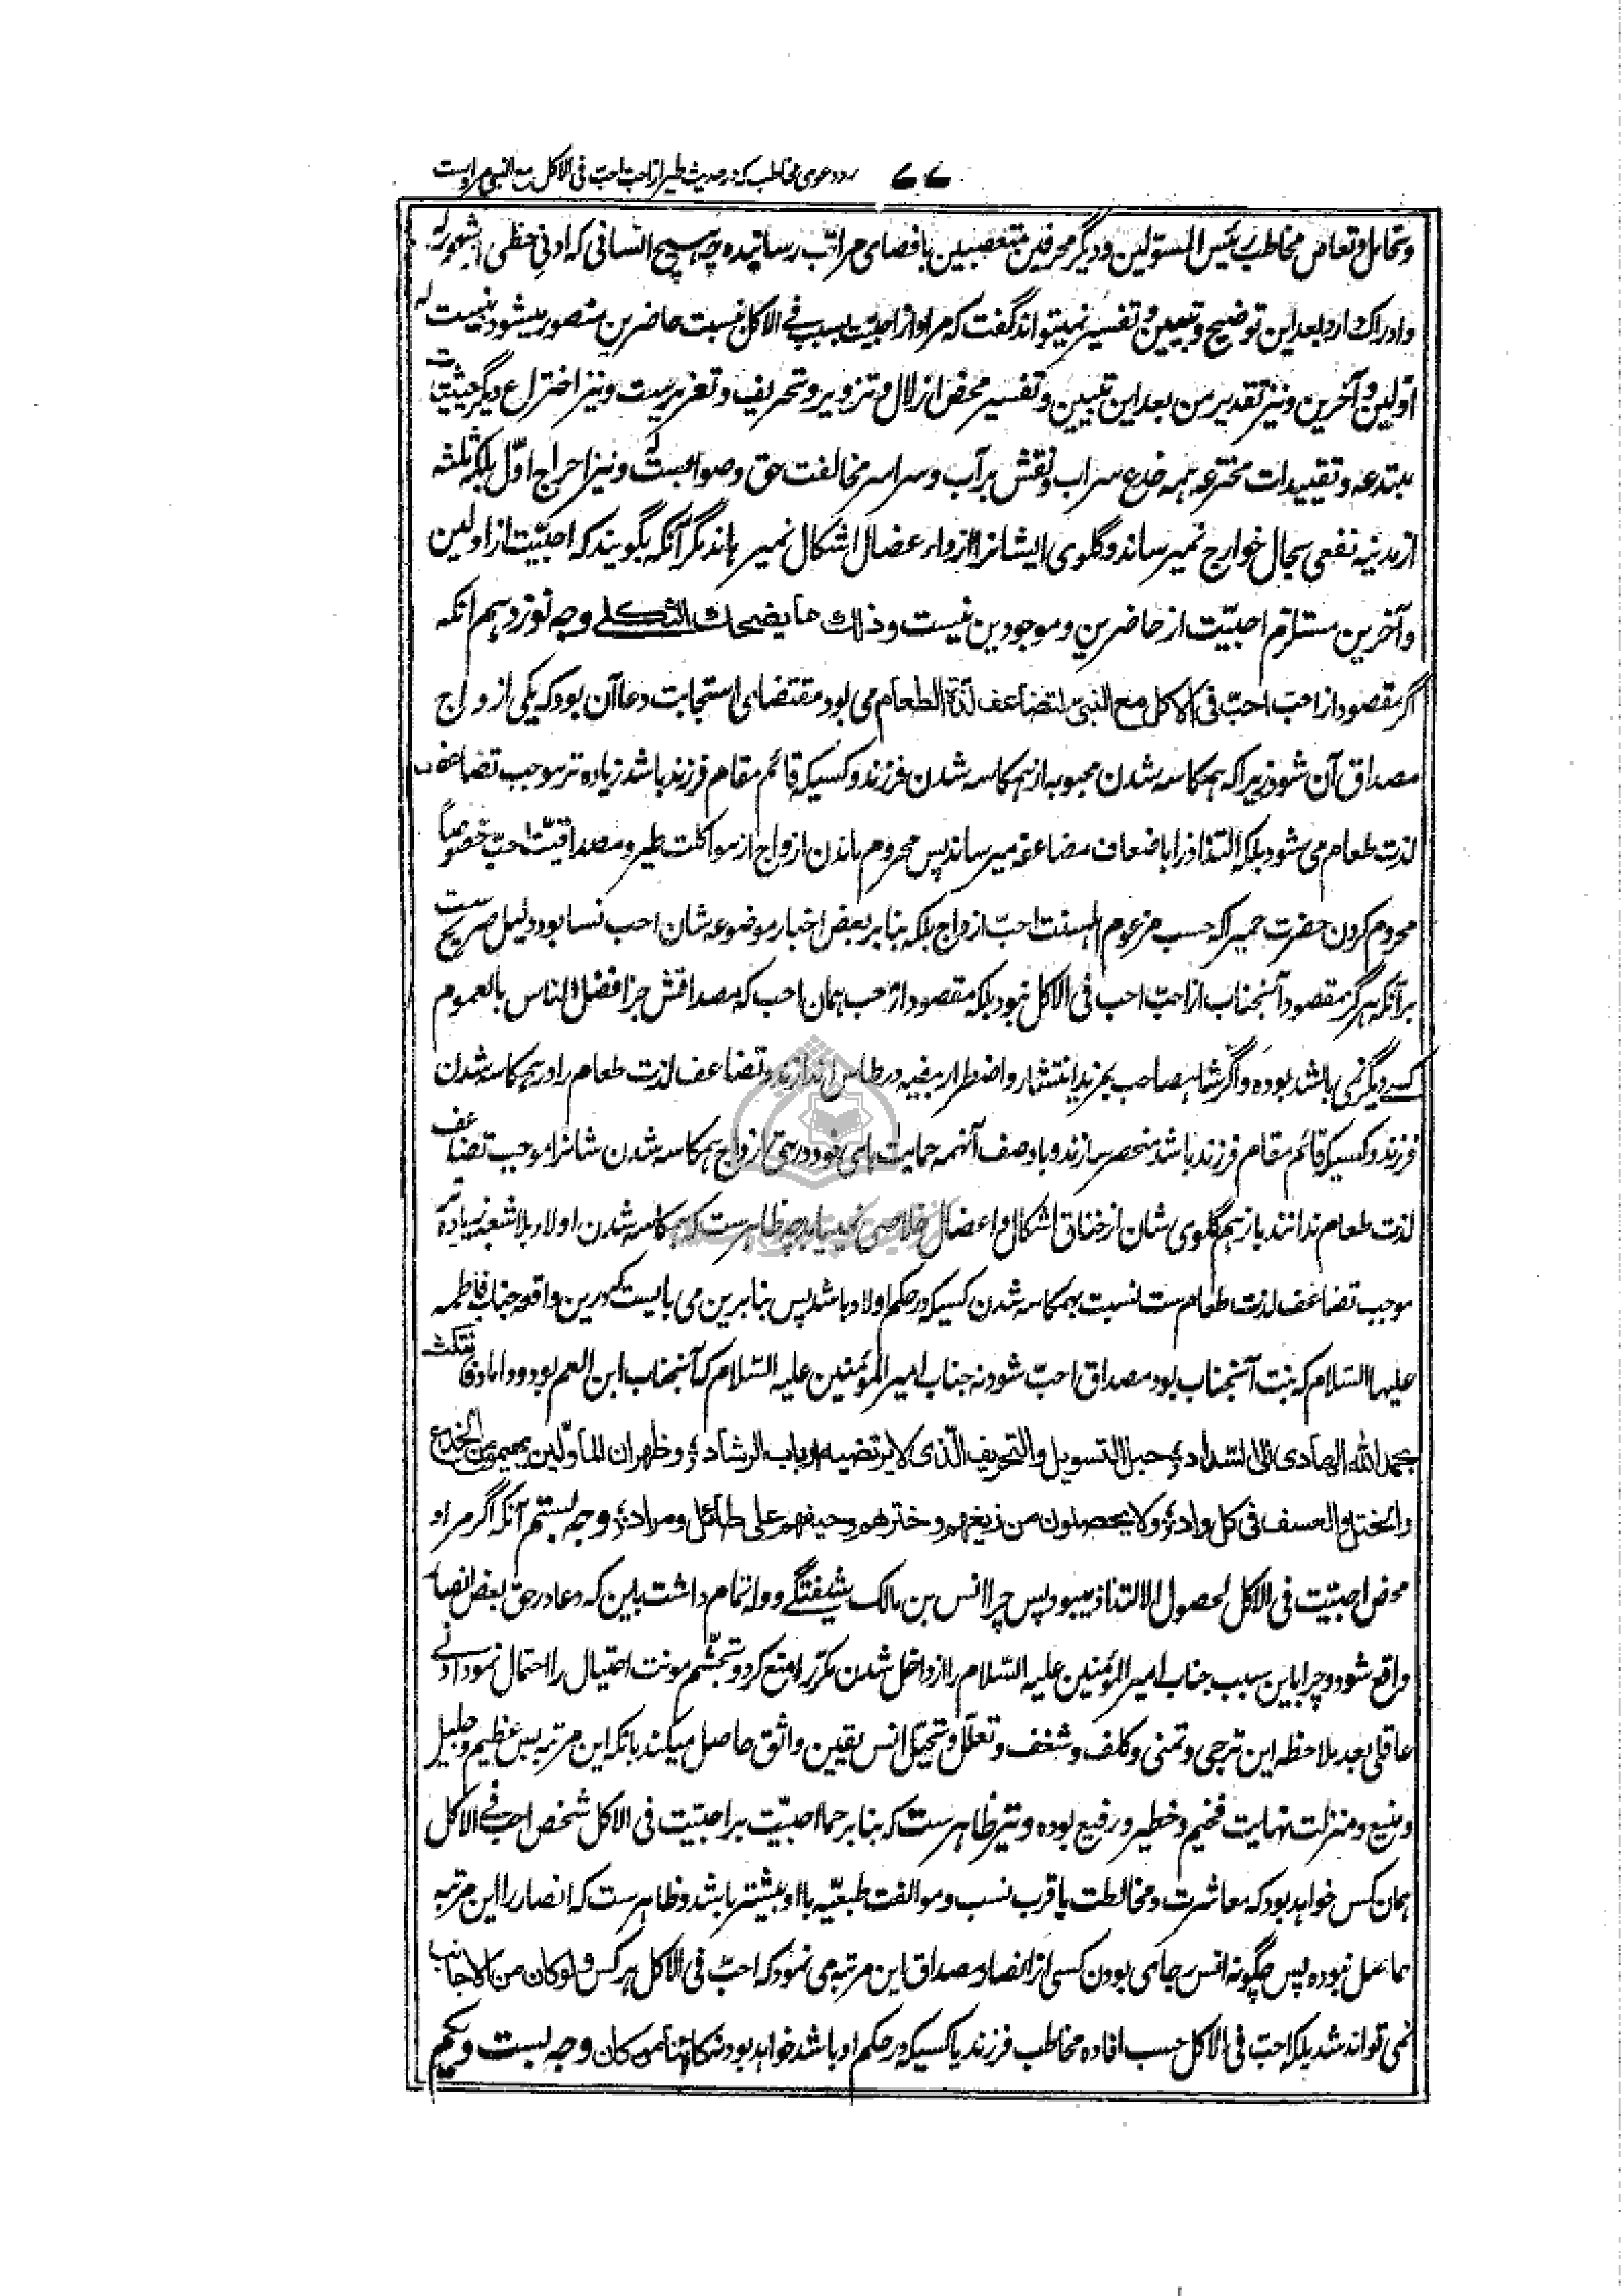 رد دعوی مخاطب که در حدیث طیر از احب احبّ فی الاکل مع النبی مراد است ۷۷
و تحامل و تعامی مخاطب رئیس المسوّلین و دیگر محرفین متعصبین باقصای مراتب رسانیده چه هیچ انسانی که ادنی حظی از شعور
و ادراک دارد بعد این توضیح و تبیین و تفسیر نمیتواند گفت که مراد از احبیّت فی الاکل نسبت حاضرین متصور میشود نه نسبت
اوّلین و آخرین و نیز تقدیر من بعد این تبیین و تفسیر محض ازلال و تزویر و تحریف و تغریرست و نیز اختراع دیگر حیثیات
مبتدعه و تقییدات مخترعه همه خدع سراب و نقش بر آب و سراسر مخالفت حق و صوابست و نیز اخراج اوّل بلکه ثلثه
از مدینه نفعی بحال خوارج نمیرساند و گلوی ایشانرا از داء عضال اشکال نمیرهاند مگر آنکه بگویند که احبیّت از اولین
و آخرین مستلزم احبیّت از حاضرین و موجودین نیست و ذلك مما یضحك الثکلی وجه نوزدهم آنکه
اگر مقصود از احبّ احبّ فی الاکل مع النبیّ لتضاعف لذّة الطعام می بود مقتضای استجابت دعا آن بود که یکی از ازواج
مصداق آن شود زیرا که همکاسه شدن محبوبه از همکاسه شدن فرزند و کسیکه قائم مقام فرزند باشد زیاده تر موجب تضاعف
لذت طعام می شود بلکه التذاذ را باضعاف مضاعفه میرساند پس محروم ماندن ازواج از مواکلت طیر و مصداقیّت احبّ خصوصاً
محروم کردن حضرت حمیرا که حسب مزعوم اهلسنت احبّ ازواج بلکه بنابر بعض اخبار موضوعه شان احب نسا بود دلیل صریح ست
بر آنکه هرگز مقصود آنجناب از احبّ احب فی الاکل نبود بلکه مقصود از احب همان احب که مصداقش جز افضل الناس بالعموم
کسے دیگر نمی باشد بوده و اگر شاهصاحب بمزید انتشار و اضطرار بیفیه در طاس اندازند و تضاعف لذت طعام را در همکاسه شدن
فرزند و کسیکه قائم مقام فرزند باشد منحصر سازند و با وصف آنهمه حمایت های خود در حق ازواج همکاسه شدن شانرا موجب تضاعف
لذت طعام ندانند باز هم گلوی شان از خناق اشکال و اعضال خلاصی نمییابد چه ظاهرست که همکاسه شدن اولاد بلا شبهه زیاده تر
موجب تضاعف لذت طعام ست نسبت بهمکاسه شدن کسیکه در حکم اولاد باشد پس بنابرین می بایست که درین واقعه جناب فاطمه
علیها السّلام که بنت آنجناب بود مصداق احبّ شود نه جناب امیر المؤمنین علیه السّلام که آنجناب ابن العم بود و داماد فانتکث
بحمد الله الهادی الی السّداد حبل التسویل و التحریف الّذی لا یرتضیه ارباب الرشاد و ظهر ان المأوّلین یهیمون من الخدع
و الختل و العسف فی کل واد و لا یحصلون من زیغهم و خترهم و حیفهم علی طائل و مراد وجه بستم آنکه اگر مراد
محض احبیّت فی الاکل لحصول الالتذاذ میبود پس چرا انس بن مالک شیفتگے و وله تمام داشت باین که دعا در حق بعض انصار
واقع شود و چرا باین سبب جناب امیر المؤمنین علیه السّلام را از داخل شدن مکرّر منع کرد و تجشّم مونت احتیال را احتمال نمود ادنے
عاقلی بعد ملاحظه این ترجی و تمنی و کلف و شغف و تعلّل و تحیّل انس یقین واثق حاصل میکند بانکه این مرتبه بس عظیم و جلیل
و منیع و منزلت نهایت فخیم و خطیر و رفیع بوده و نیز ظاهرست که بنابر حمل احبیّت بر احبیّت فی الاکل شخص احب فے الاکل
همان کس خواهد بود که معاشرت و مخالطت یا قرب نسب و موالفت طبعیّه با او بیشتر باشد و ظاهرست که انصار را این مرتبه
حاصل نبوده پس چگونه انس راجی بودن کسی از انصار مصداق این مرتبه می نمود که احبّ فی الاکل هر کس و لو کان من الاجانب
نمی تواند شد بلکه احبّ فی الاکل حسب افاده مخاطب فرزند یا کسیکه در حکم او باشد خواهد بود نه کائنا من کان وجه بست و یکم